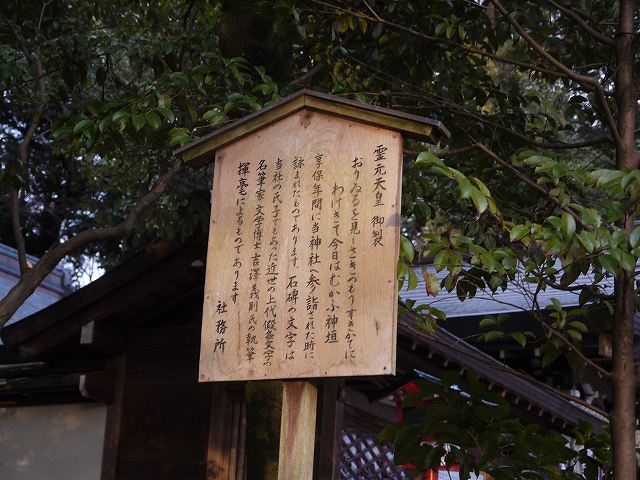 霊元天皇 御製
おりゐるを見しさきのもりすきかてに
わけきて今日はむかふ神垣
享保年間に当神社へ参詣された時に
詠まれたものであります。石碑の文字は
当社の氏子でもあった近世の上代仮名文字の
名筆家 文学博士 吉澤義則氏の執筆
揮毫によるものであります。
社務所